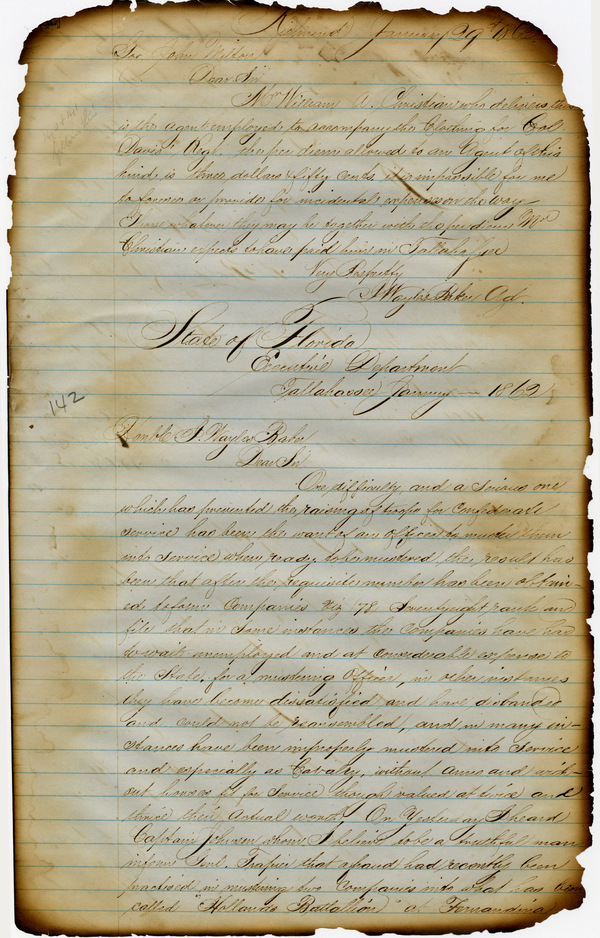 Richmond January 29th 1862
Gov John Milton
Dear Sir
Mr William A. Christian who delivers this
is the agent employed to accompany the Clothing for Col
Davis' Regt, the per diem allowed to an Agent of this
kind is three dollars & fifty cents it is impossible for me
to foresee or provide for incidental expenses on the way
they may be together with the per diem Mr
Christian expects to have paid him in Tallahassee
Very Respectfy
J Wayles Baker Agt.
State of Florida
Executive Department
Tallahassee January 1862
142
Honble J. Wayles Baker
Dear Sir
One difficulty and a serious one
which has prevented the raising of troops for Confederate
service has been the want of an officer to muster them
into service when ready to be mustered, the result has
been that after the requisite number has been obtain-
ed to form Companies Viz 78 Seventyeight rank and
file that in some instances the Companies have had
to wait unemployed and at considerable expense to
the State for a mustering Officer, in other instances
they have become dissatisfied and have disbanded
and could not be reassembled, and in many in-
stances have been improperly mustered into service
and especially as Cavalry, without arms and with-
out horses fit for service though valued at twice and
thrice their actual worth. On Yesterday I heard
Captain Johnson whom I believe to be a truthful man
inform Genl. Trapier that a fraud had recently been
practised in mustering two Companies into what has been
called "Hollands Battallion" at Fernandina